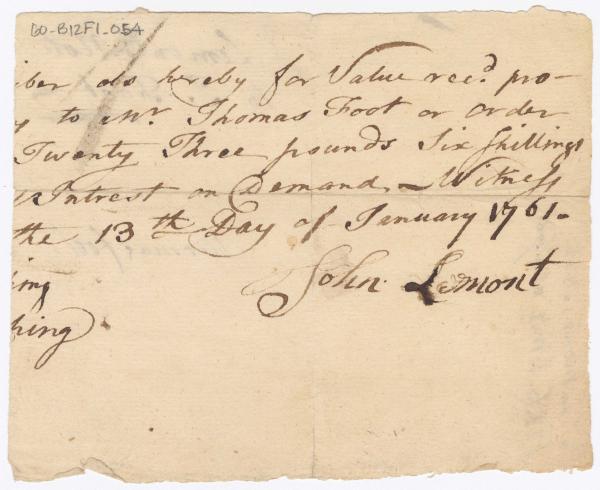 BO-B12F1-054
iber do hereby for Value recd. pro-
y to Mr. Thomas Foot or order
Twenty Three pounds Six shillings
Intrest on Demand, Witness
the 13th Day of January 1761.
John Lemont
ing
hing